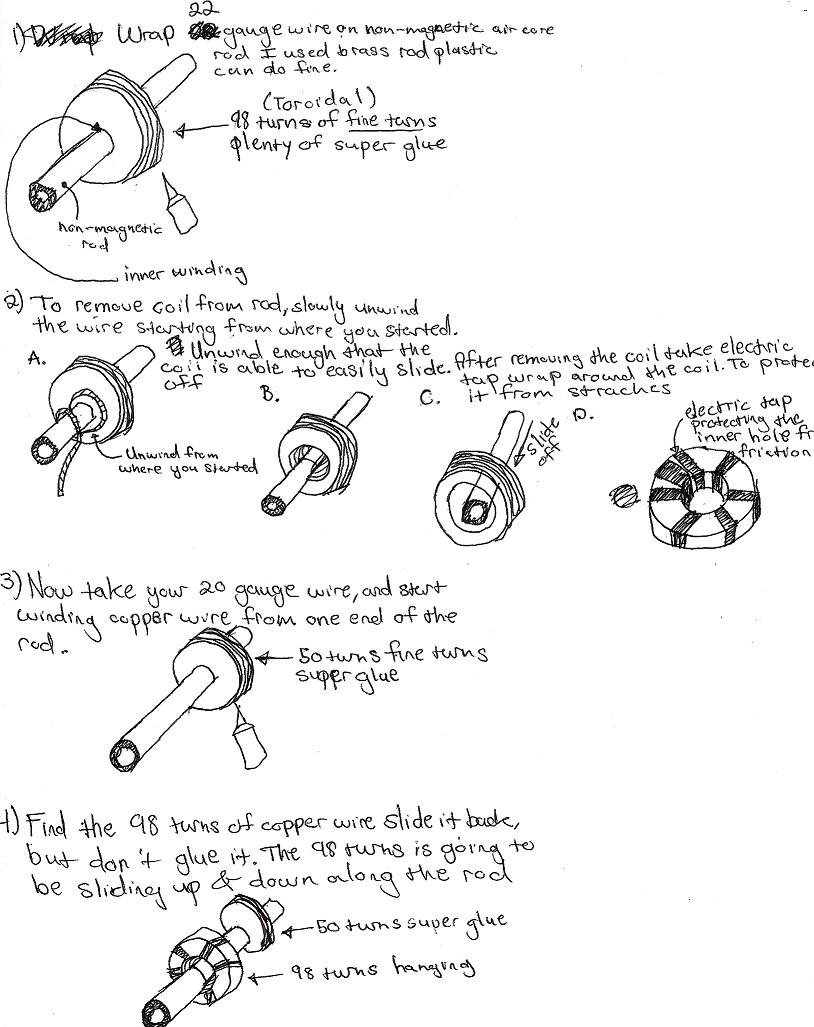 22
1) Wrap gauge wire on non-magnetic air core
rod I used brass rod plastic
can do fine.
(Toroidal)
98 turns of fine turns
plenty of super glue
non-magnetic
rod
inner winding
2) To remove coil from rod, slowly unwind
the wire starting from where you started.
A.
Unwind enough that the
coil is able to easily slide.
off
B.
Unwind from
where you started
After removing the coil take electric
tap wrap around the coil. To prote
it from straches
C.
slide
off
D.
electric tap
protecting the
inner hole fr
friction
3) Now take your 20 gauge wire, and start
winding copper wire from one end of the
rod.
50 turns fine turns
super glue
4) Find the 98 turns of copper wire slide it back,
but don't glue it. The 98 turns is going to
be sliding up & down along the rod
50 turns super glue
98 turns hanging